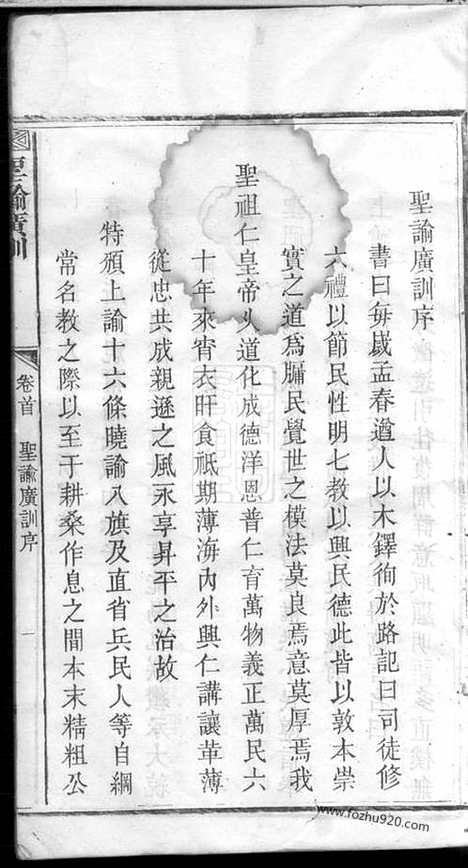 聖諭廣訓序
書曰每歲孟春遒人以木鐸徇於路記曰司徒修
六禮以節民性明七教以興民德此皆以敦本崇
實之道為牖民覺世之模法莫良焉意莫厚焉我
聖祖仁皇帝久道化成德洋恩普仁育萬物義正萬民六
十年來宵衣旰食祗期薄海內外興仁講讓革薄
從忠共成親遜之風永享昇平之治故
特頒上諭十六條曉諭八旗及直省兵民人等自綱
常名教之際以至于耕桑作息之間本末精粗公
聖諭廣訓
卷首 聖諭廣訓序 一
www.fozhu920.com